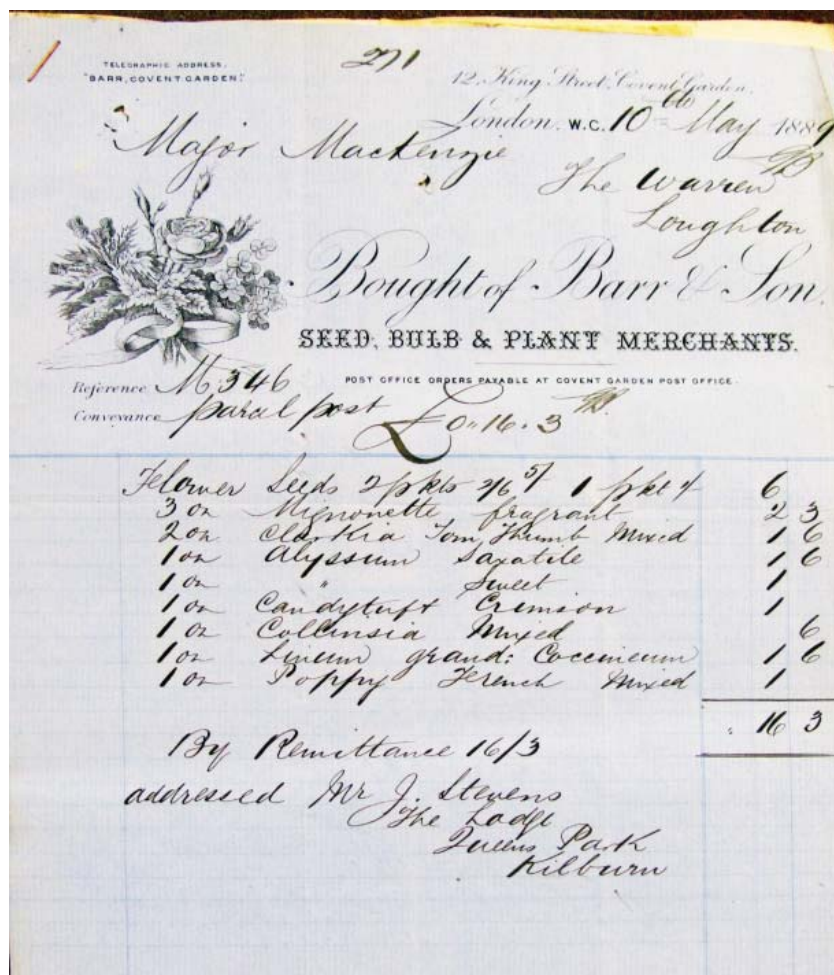 TELEGRAPHIC ADDRESS.
"BARR, COVENT GARDEN."
271
12, King Street, Covent Garden,
London. W.C. 10th May 1889
Major Mackenzie
The Warren
Loughton
Bought of Barr & Son,
SEED, BULB & PLANT MERCHANTS.
Reference M 346
POST OFFICE ORDERS PAYABLE AT COVENT GARDEN POST OFFICE.
Conveyance parcel post
£0„16.3
Flower Seeds 2 pkts 2/6 5/ 1 pkt 1/ 6
3 oz Mignonette fragrant 2 3
2 oz Clarkia Tom Thumb Mixed 1 6
1 oz Alyssum Saxatile 1 6
1 oz " Sweet 1
1 oz Candytuft Crimson 1
1 oz Collinsia Mixed 6
1 oz Linum grand: Coccineum 1 6
1 oz Poppy French Mixed 1
16 3
By Remittance 16/3
addressed Mr J. Stevens
The Lodge
Queens Park
Kilburn